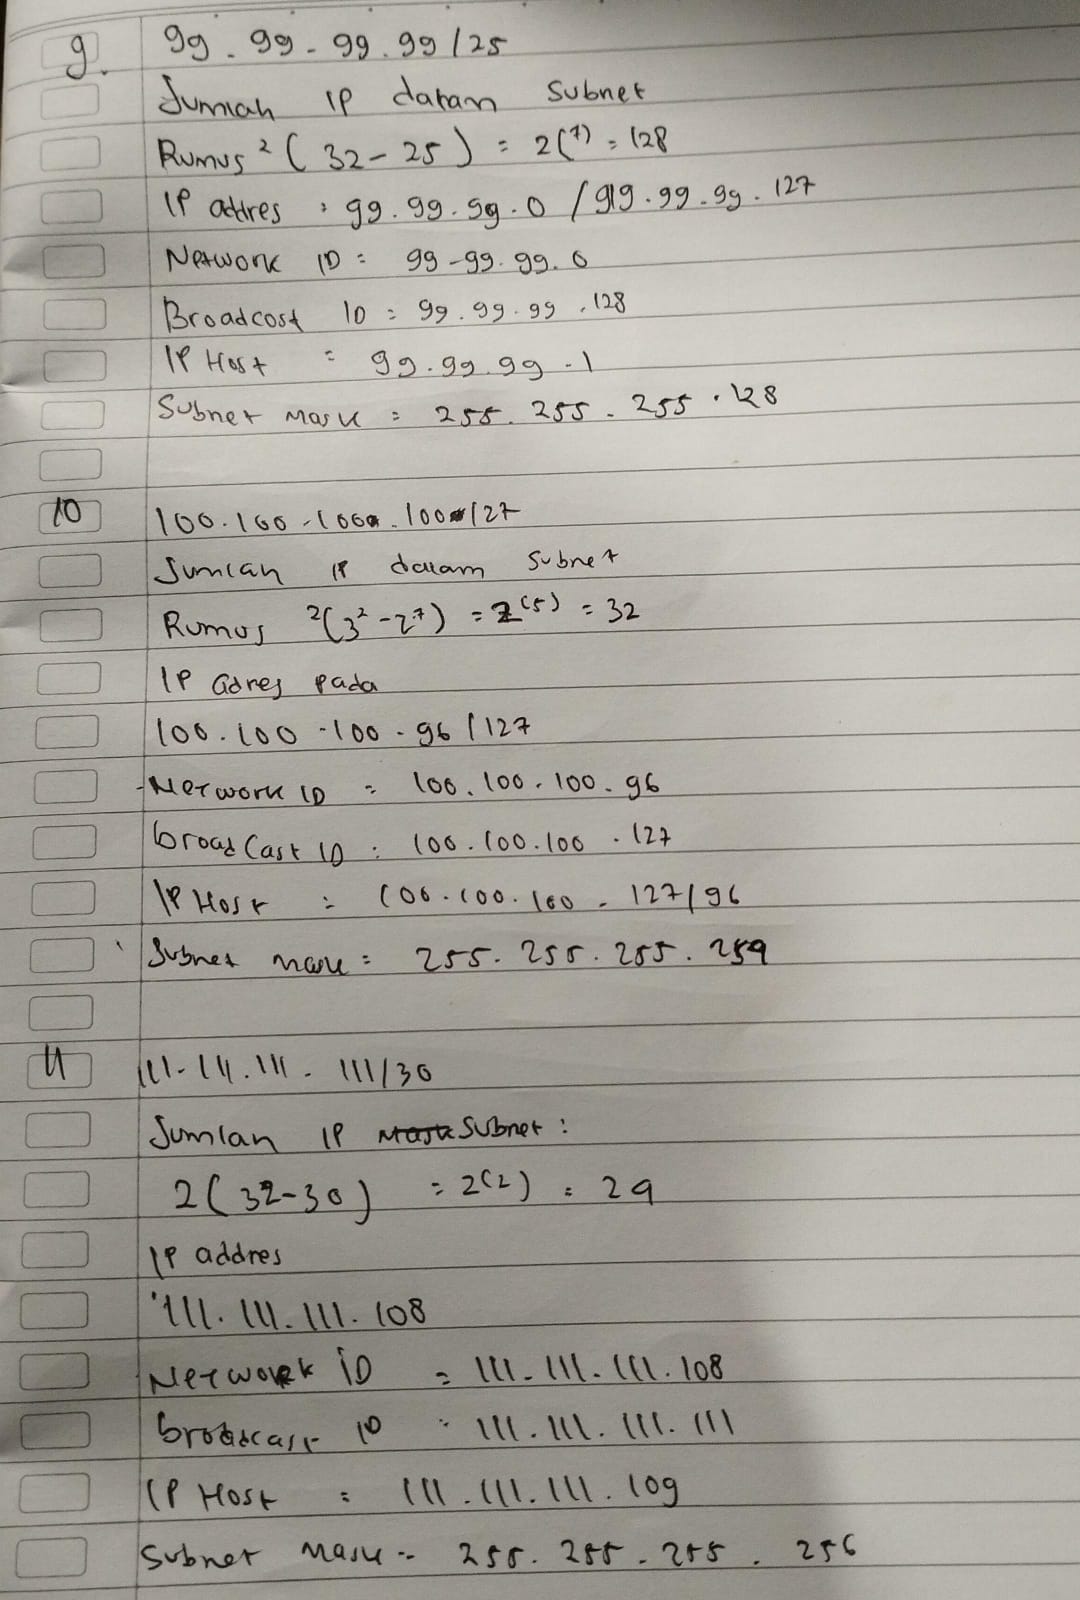 9. 99.99-99.99/25
Jumlah IP dalam Subnet
Rumus 2(32-25) = 2(7) = 128
IP addres : 99.99.99.0 / 99.99.99.127
Network ID = 99-99.99.0
Broadcost ID = 99.99.99.128
IP Host = 99.99.99.1
Subnet mask = 255.255.255.128
10 100.100-100.100/27
Jumlah IP dalam Subnet
Rumus 2(32-27) = 2(5) = 32
IP adres pada
100.100-100.96/127
-Network ID = 100.100.100.96
broad Cast ID : 100.100.100.127
IP Host : 100.100.100.127/96
Subnet mask = 255.255.255.259
11 111-111.111-111/30
Jumlah IP Subnet :
2(32-30) = 2(2) = 29
IP addres
111.111-111.108
Network ID = 111-111.111.108
broadcast ID : 111.111.111.111
IP Host = 111.111.111.109
Subnet Mask = 255.255-255.256